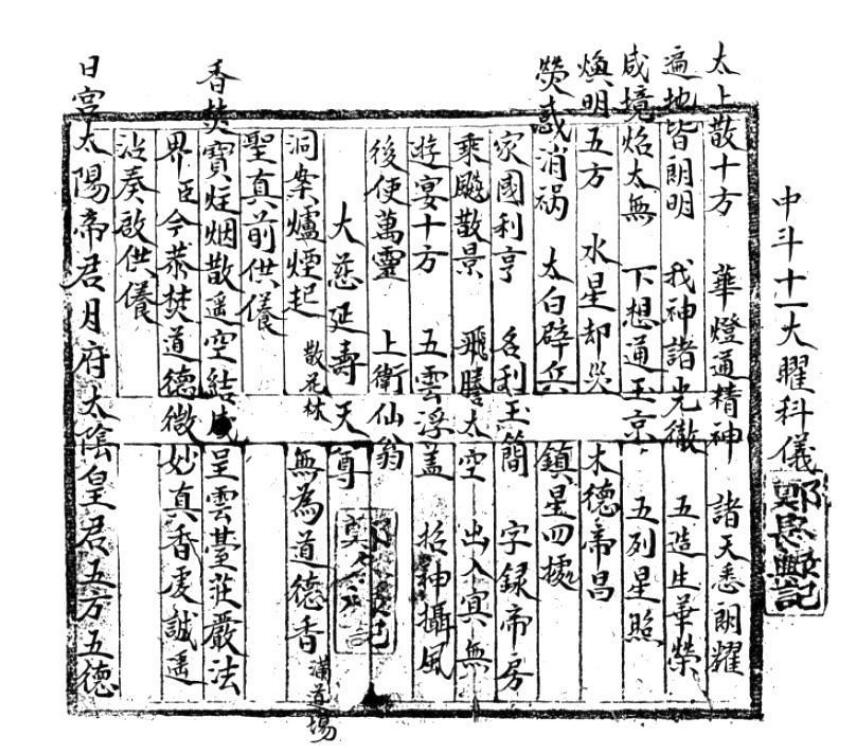 中斗十一大曜科儀 鄭恩興記
太上散十方 華燈通精神 諸天悉朗耀
遍地皆朗明 我神諸光徹 五造生華榮
咸境焰太無 下想通玉京 五列星照
煥明五方 水星却災 木德帝昌
熒惑消祸 太白辟兵 鎮星四據
家國利亨 名利玉簡 字録帝房
乘飚散景 飛騰太空 出入冥無
遊宴十方 五雲浮蓋 招神攝風
後使萬靈 上衛仙翁
大慈延壽天尊
洞案爐煙起 散花林 無為道德香 滿道場
聖真前供儀
香焚寶炷烟散遥空結成呈雲臺莊嚴法
界臣今恭焚道德微妙真香虔誠遥
沾奏啟供儀
日宮太陽帝君月府太陰皇君五方五德